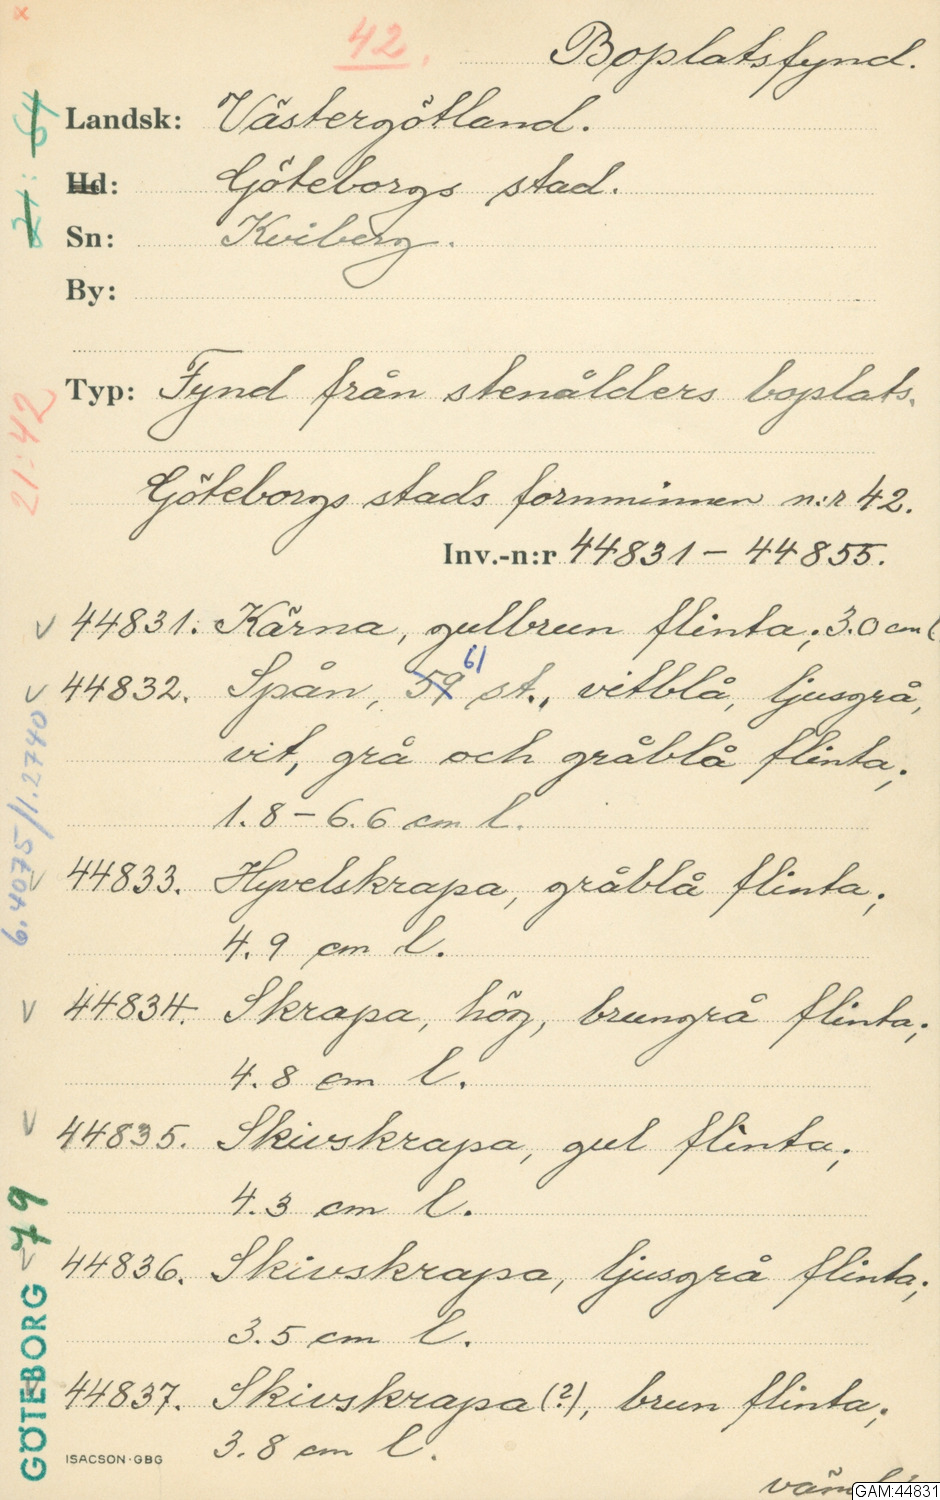 42.
Boplatsfynd.
Landsk: Västergötland.
Hd: Göteborgs stad.
Sn: Kviberg.
By:
Typ: Fynd från stenålders boplats.
Göteborgs stads fornminnen n:r 42.
Inv.-n:r 44831 – 44855.
44831. Kärna, gulbrun flinta; 3.0 cm l
44832. Spån, 59 61 st., vitblå, ljusgrå,
vit, grå och gråblå flinta;
1.8 – 6.6 cm l.
44833. Hyvelskrapa, gråblå flinta;
4.9 cm l.
44834. Skrapa, hög, brungrå flinta;
4.8 cm l.
44835. Skivskrapa, gul flinta;
4.3 cm l.
44836. Skivskrapa, ljusgrå flinta;
3.5 cm l.
44837. Skivskrapa (?), brun flinta;
3.8 cm l.
ISACSON·GBG
GAM:44831
21:64
21:42
6.4075/1.2740
GÖTEBORG 79